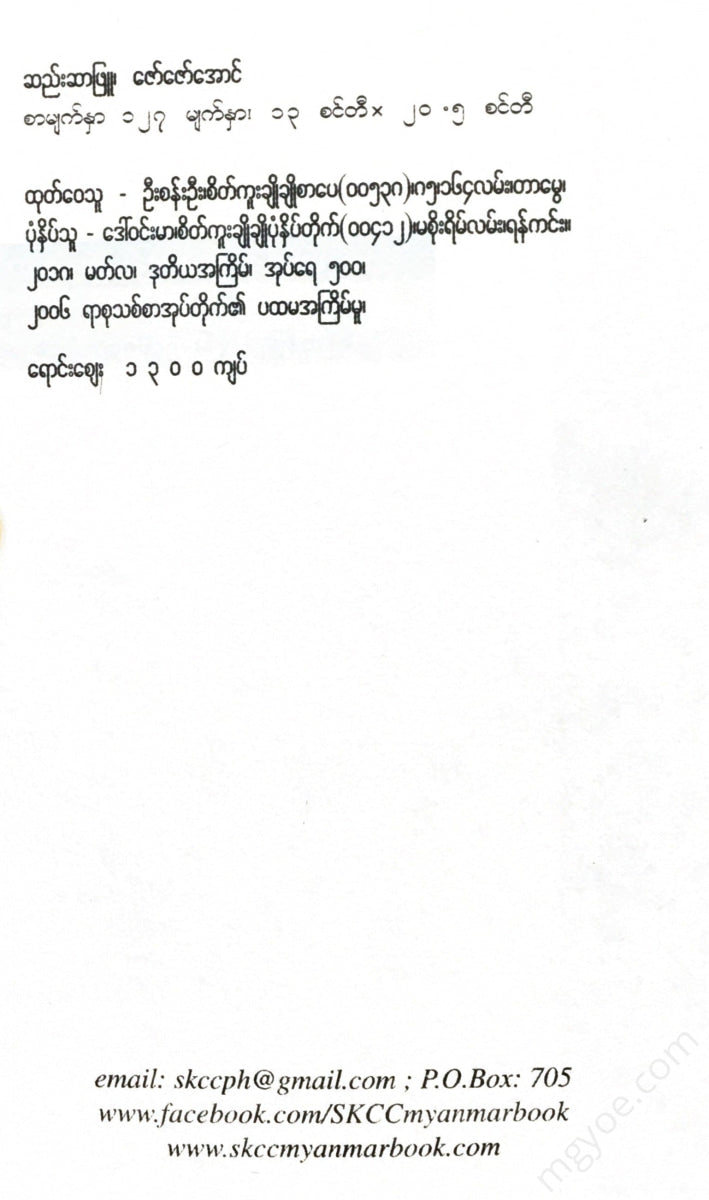 ဆည်းဆာဖြူ၊ ဇော်ဇော်အောင်
စာမျက်နှာ ၁၂၇ မျက်နှာ၊ ၁၃ စင်တီ× ၂၀ ·၅ စင်တီ
ထုတ်ဝေသူ - ဦးစန်းဦး၊စိတ်ကူးချိုချိုစာပေ(၀၀၅၃၈)၊၈၅၊၁၆၄လမ်း၊တာမွေ၊
ပုံနှိပ်သူ - ဒေါ်ဝင်းမာ၊စိတ်ကူးချိုချိုပုံနှိပ်တိုက်(၀၀၄၁၂)၊မစိုးရိမ်လမ်း၊ရန်ကင်း။
၂၀၁၈၊ မတ်လ၊ ဒုတိယအကြိမ်၊ အုပ်ရေ ၅၀၀၊
၂၀၀၆ ရာစုသစ်စာအုပ်တိုက်၏ ပထမအကြိမ်မူ၊
ရောင်းဈေး ၁ ၃ ၀ ၀ ကျပ်
email: skccph@gmail.com ; P.O.Box: 705
www.facebook.com/SKCCmyanmarbook
www.skccmyanmarbook.com
mgyoe.com